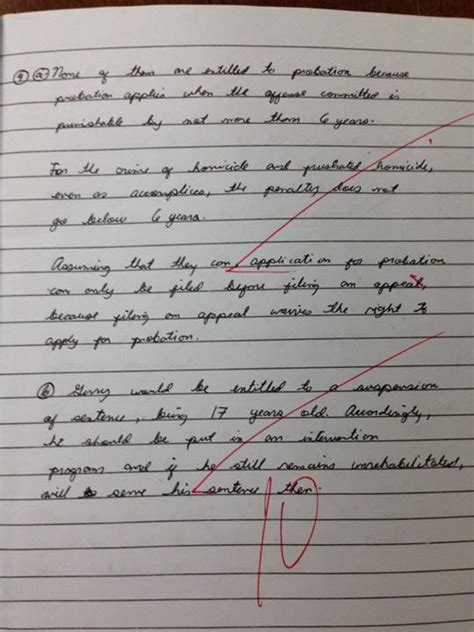 9 a) None of them are entitled to probation because
probation applies when the offense committed is
punishable by not more than 6 years.
For the crime of homicide and frustrated homicide,
even as accomplices, the penalty does not
go below 6 years.
Assuming that they can, application for probation
can only be filed before filing an appeal,
because filing an appeal waives the right to
apply for probation.
b) Gerry would be entitled to a suspension
of sentence, being 17 years old. Accordingly,
he should be put in an intervention
program and if he still remains unrehabilitated,
will to serve his sentence then.
10